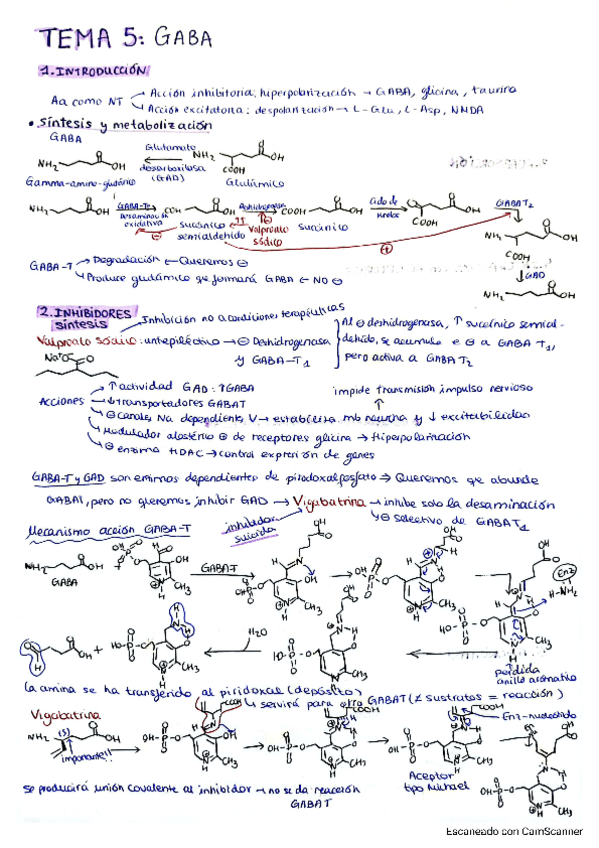 TEMA 5: GABA
1. INTRODUCCIÓN
Aa como NT
Acción inhibitoria: hiperpolarización → GABA, glicina, taurina
Acción excitatoria: despolarización → L-Glu, L-Asp, NMDA
• síntesis y metabolización
GABA
Glutamato
descarboxilasa
(GAD)
Gamma-amino-
Glutámico
GABA-T
Desaminación
oxidativa
succínico
semialdehido
Valproato
sódico
succínico
Ciclo de
Krebs
GABAT2
GAD
GABA-T
Degradación ← Queremos ⊖
Produce glutámico que formará GABA ← NO ⊖
2. INHIBIDORES
síntesis
Inhibición no a condiciones terapéuticas
Valproato sódico: antiepiléptico → ⊖ Deshidrogenasa
y GABA-T1
Al ⊖ deshidrogenasa, ↑ succínico semial-
dehido, se acumula e ⊖ a GABA T1,
pero activa a GABA T2
Acciones
↑ actividad GAD: ↑GABA
↓ transportadores GABAT
⊖ canales Na dependiente V → estabiliza mb neurona y ↓ excitabilidad
impide transmisión impulso nervioso
Modulador alostérico ⊕ de receptores glicina → Hiperpolarización
⊖ enzima HDAC → control expresión de genes
GABA-T y GAD son enzimas dependientes de piridoxalfosfato → Queremos que abunde
GABA, pero no queremos inhibir GAD → Vigabatrina → inhibe solo la desaminación
y ⊖ selectivo de GABAT1
inhibidor
suicida
Mecanismo acción GABA-T
GABA
GABAT
Enz
H2O
Pérdida
anillo aromático
La amina se ha transferido al piridoxal (depósito)
servirá para otro GABAT (≠ sustratos = reacción)
Vigabatrina
(S)
importante!!
Enz-nucleófilo
Aceptor
tipo Michael
se producirá unión covalente al inhibidor → no se da reacción
GABAT
Escaneado con CamScanner